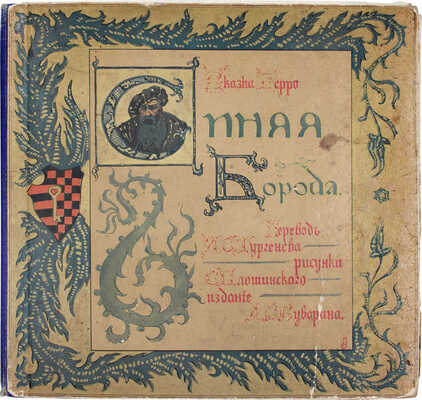 Сказка Перро
Синяя
Борода.
Переводъ
И. С. Тургенева
рисунки
Плошинскаго
изданіе